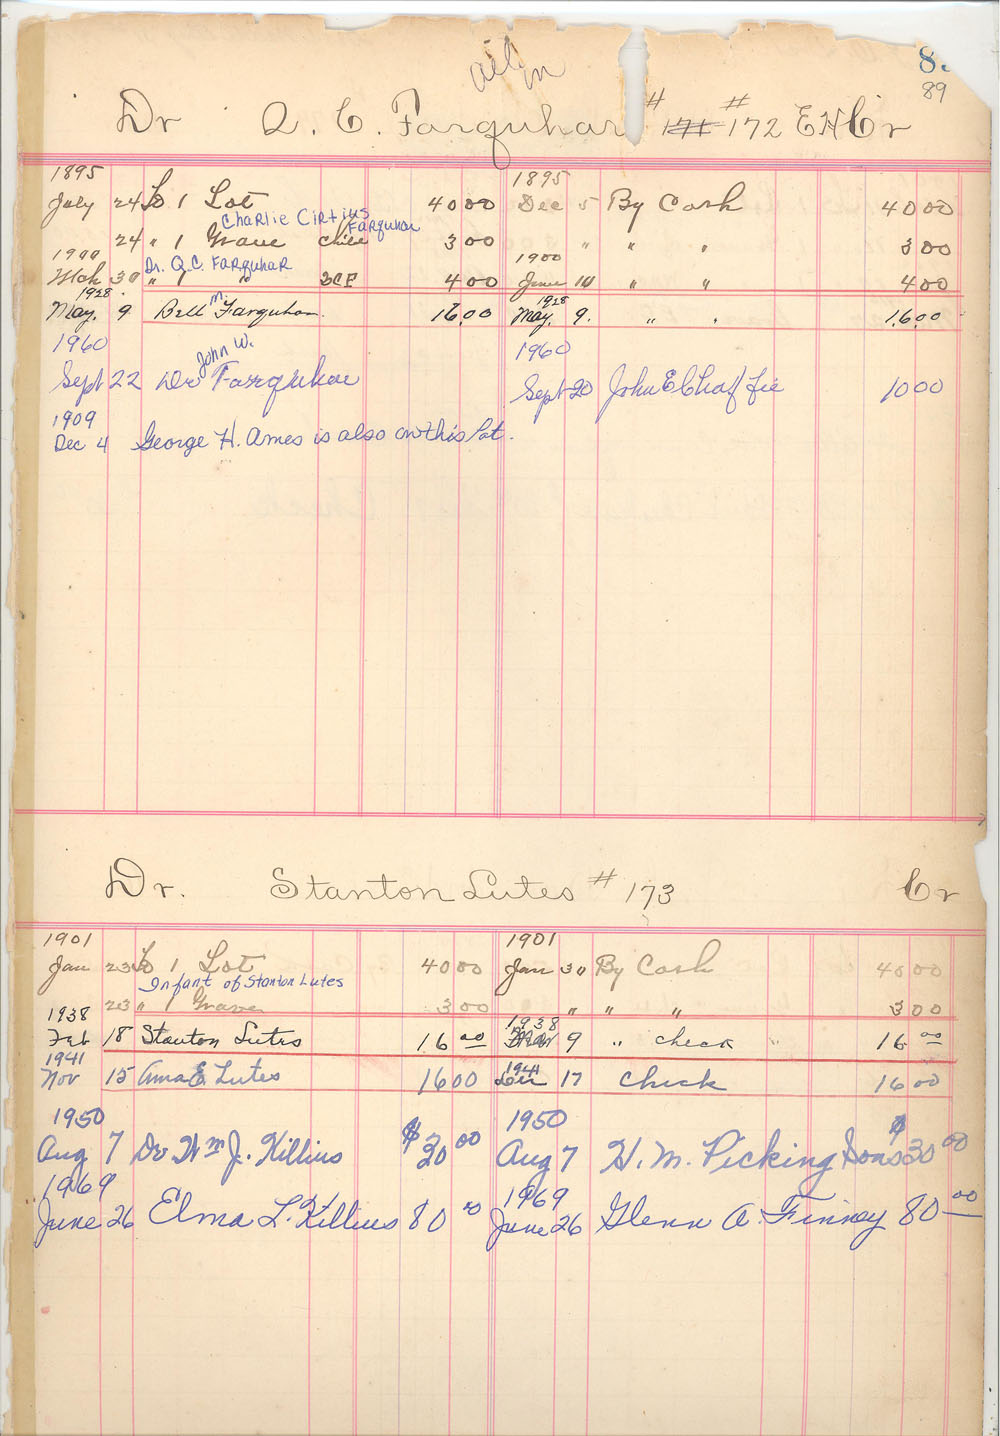 all in
89
Dr Q. C. Farquhar # 171 # 172 E H Cr
1895 1895
July 24 To 1 Lot 40 00 Dec 5 By Cash 40 00
Charlie Cirtius Farquhar
24 " 1 Grave Child 3 00 " " " 3 00
1900 Dr. Q.C. Farquhar 1900
Mch 30 " 1 " 4 00 June 10 " " 4 00
1928 1928
May. 9 Bell M. Farquhar. 16.00 May. 9. " " 16.00
1960 John W. 1960
Sept 22 Dr Farquhar Sept 20 John E Chaffee 10 00
1909
Dec 4 George H. Ames is also on this Lot.
Dr. Stanton Lutes # 173 Cr
1901 1901
Jan 23 To 1 Lot 40 00 Jan 30 By Cash 40 00
Infant of Stanton Lutes
23 " 1 Grave 3 00 " " " 3 00
1938 1938
Feb 18 Stanton Lutes 16 00 Mar 9 " check 16 00
1941 1941
Nov 15 Ama E Lutes 16 00 Dec 17 Check 16 00
1950 1950
Aug 7 Dr Wm J. Killius $30 00 Aug 7 H. M. Picking Sons $30 00
1969 1969
June 26 Elma L. Killius 80 00 June 26 Glenn A. Finney 80 00